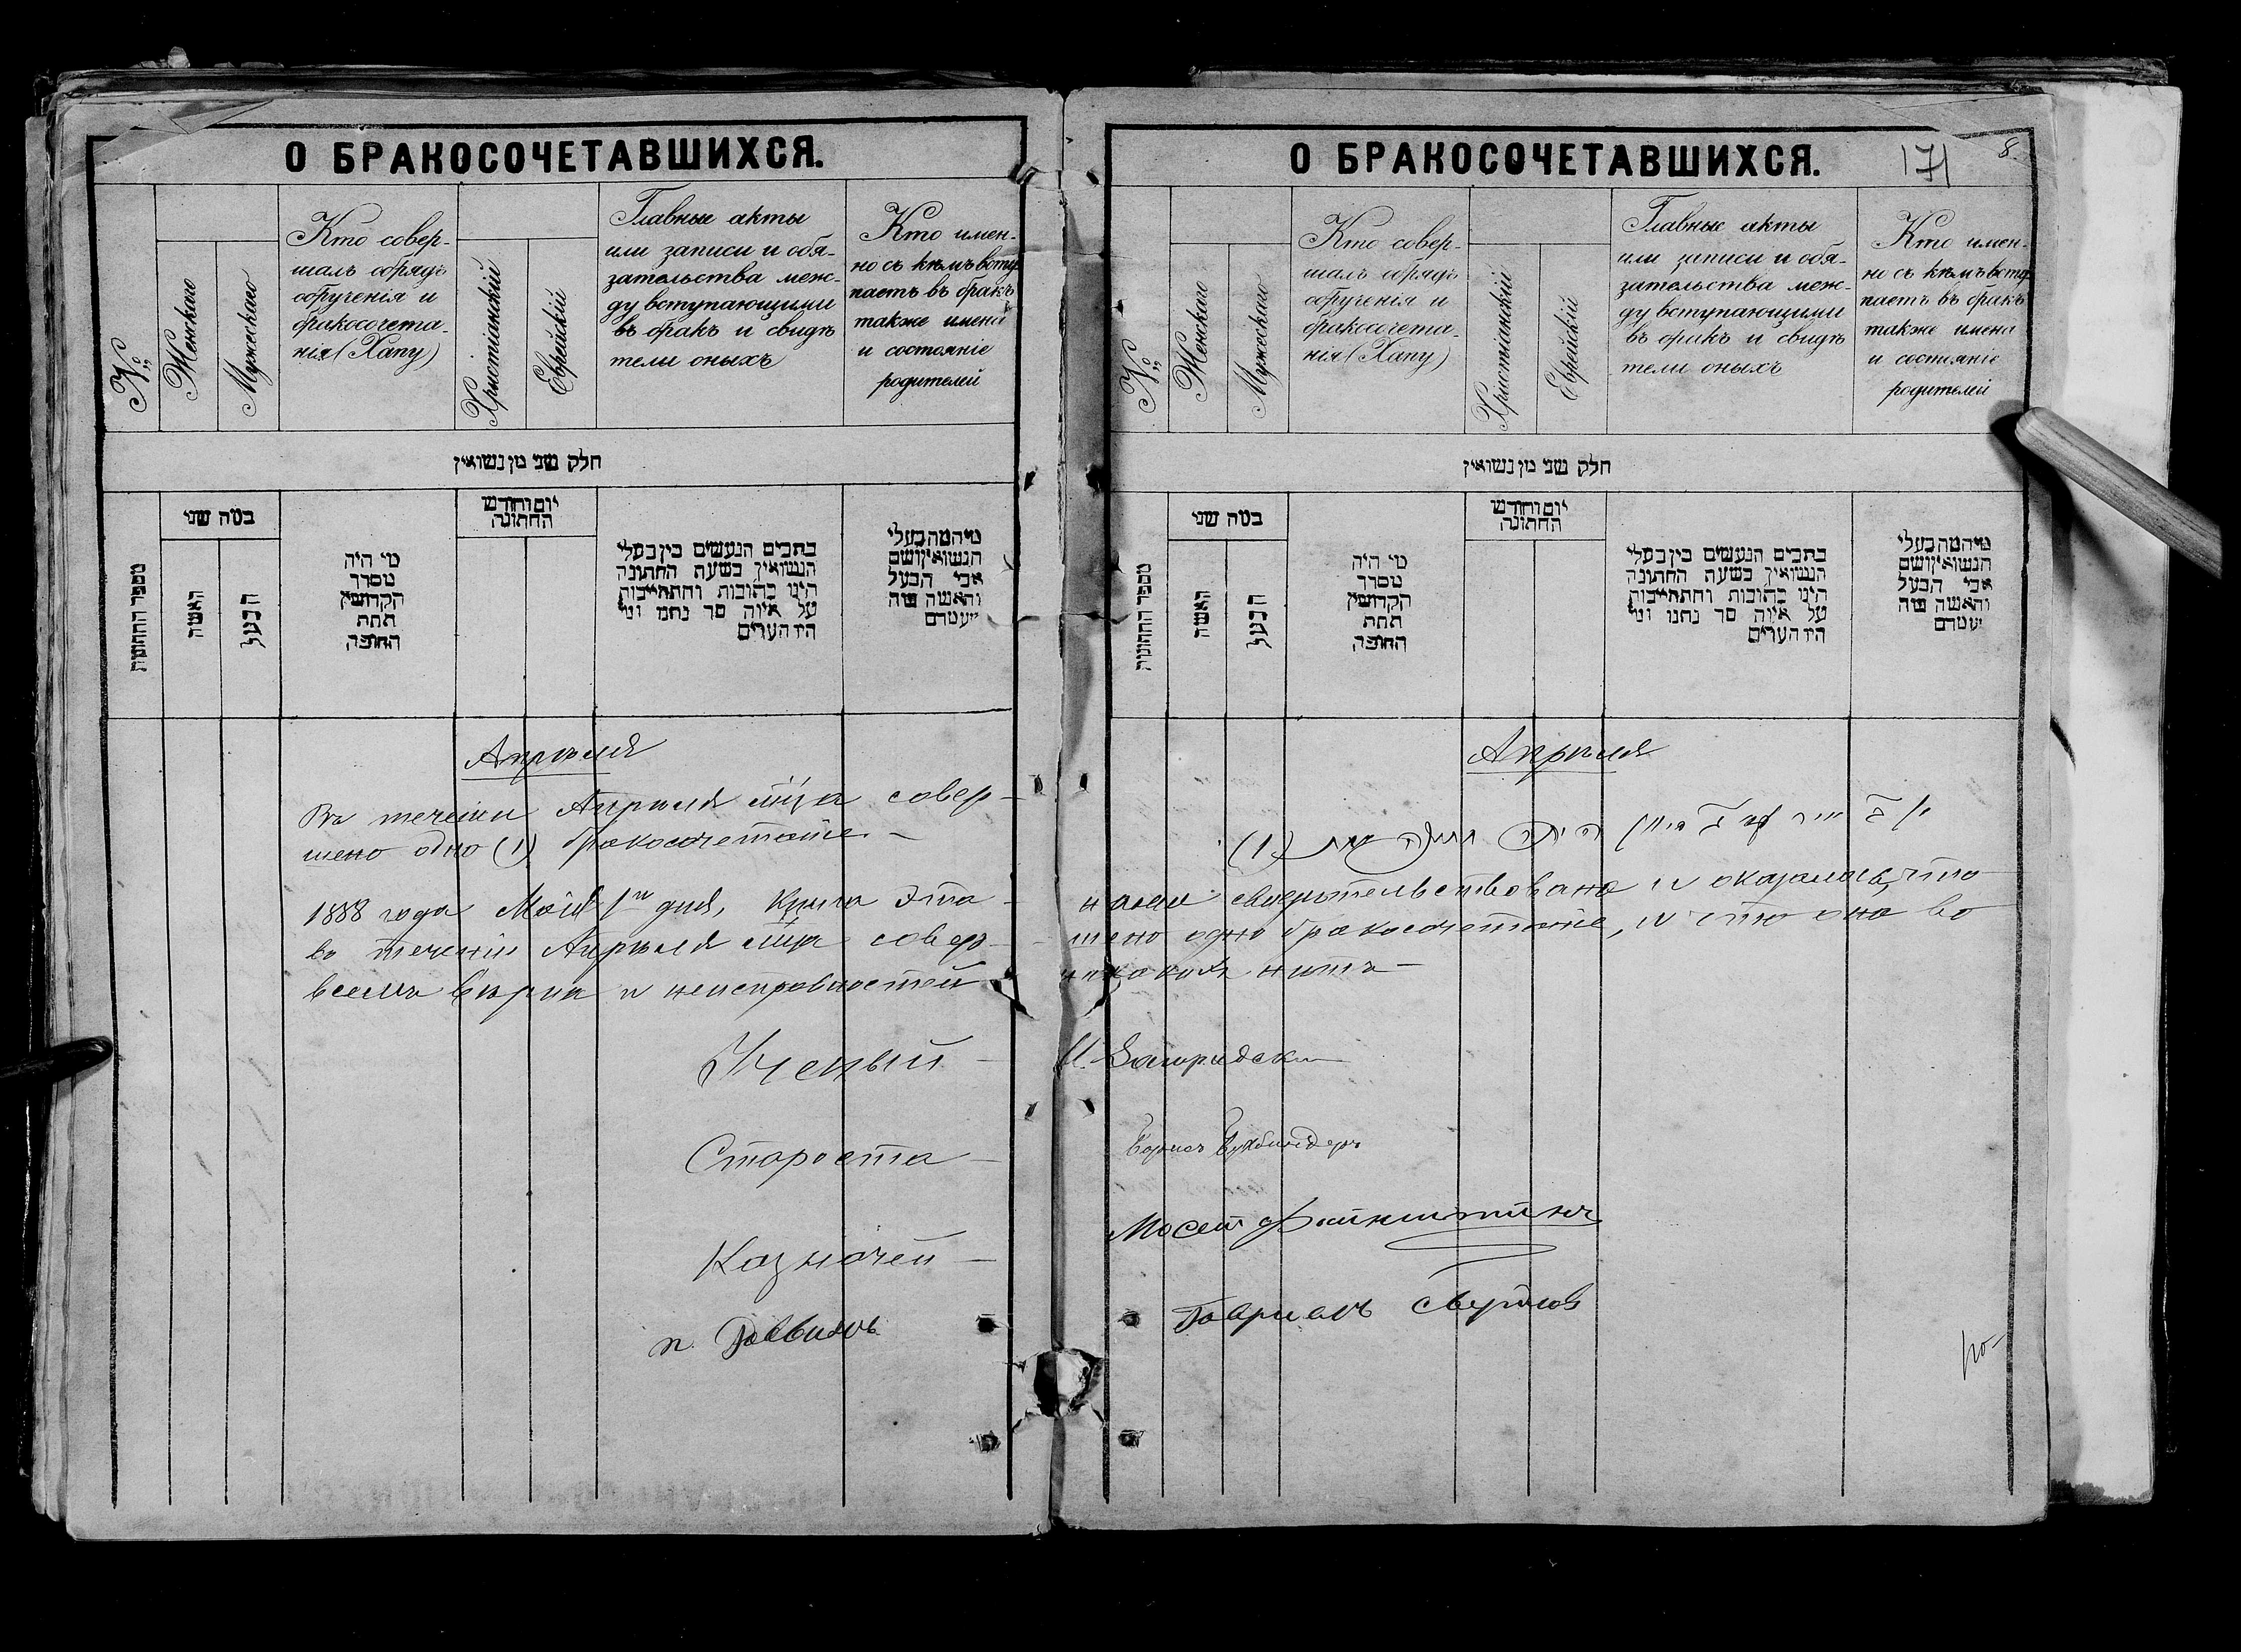 О БРАКОСОЧЕТАВШИХСЯ.
№
Женскаго
Мужескаго
Кто совер-
шалъ обрядъ
обрученія и
бракосочета-
нія (Хапу)
Христіанскій
Еврейскій
Главные акты
или записи и обя-
зательства меж-
ду вступающими
въ бракъ и свидѣ
тели оныхъ
Кто имен-
но съ кѣмъ всту
паетъ въ бракъ
также имена
и состояніе
родителей
חלק שני מן נשואין
מספר החתונות
כמה שני
האשה
הבעל
מי היה
מסדר
הקדושין
תחת
החופה
יום וחודש
החתונה
כתבים הנעשים בין בעלי
הנשואין בשעת החתונה
היינו כתובות והתחייבות
על איזה סך נתנו ומי
היו העדים
מי המה בעלי
הנשואין ושם
אבי הבעל
והאשה מה
מעמדם
Апрѣля
Въ теченіи Апрѣля м-ца совер-
шено одно (1) бракосочетаніе. –
1888 года Маія 1го дня, Книга эта
въ теченіи Апрѣля м-ца совер-
всемъ вѣрна и неисправностей
Ученый –
Староста –
Казначей –
О БРАКОСОЧЕТАВШИХСЯ.
171
8.
№
Женскаго
Мужескаго
Кто совер-
шалъ обрядъ
обрученія и
бракосочета-
нія (Хапу)
Христіанскій
Еврейскій
Главные акты
или записи и обя-
зательства меж-
ду вступающими
въ бракъ и свидѣ
тели оныхъ
Кто имен-
но съ кѣмъ всту
паетъ въ бракъ
также имена
и состояніе
родителей
חלק שני מן נשואין
מספר החתונות
כמה שני
האשה
הבעל
מי היה
מסדר
הקדושין
תחת
החופה
יום וחודש
החתונה
כתבים הנעשים בין בעלי
הנשואין בשעת החתונה
היינו כתובות והתחייבות
על איזה סך נתנו ומי
היו העדים
מי המה בעלי
הנשואין ושם
אבי הבעל
והאשה מה
מעמדם
Апрѣля
(1)
нами свидѣтельствована и оказалось, что
шено одно бракосочетаніе, и что она во
никакихъ нѣтъ –
Борисъ Букбиндеръ
Мосей Файнштейнъ
Гавріилъ